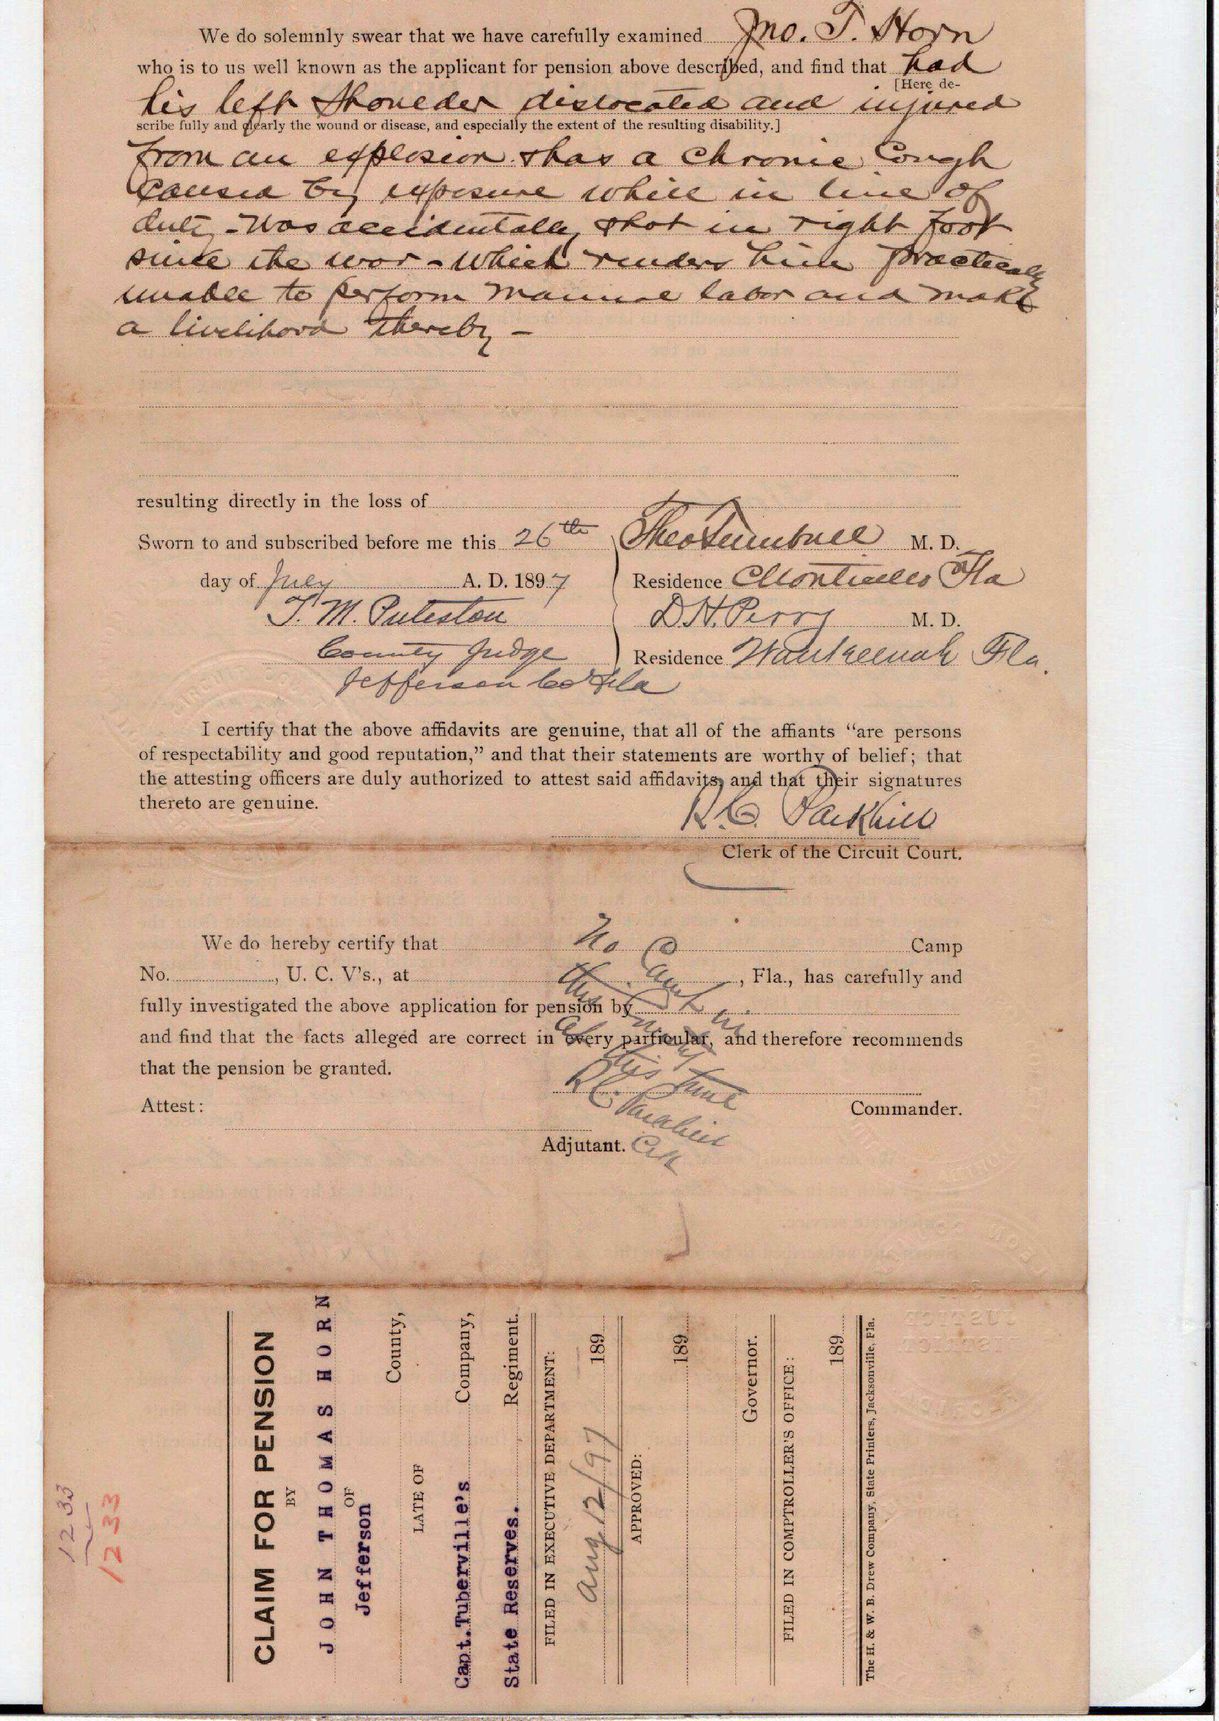 We do solemnly swear that we have carefully examined Jno. T. Horn
who is to us well known as the applicant for pension above described, and find that had
[Here de-
his left shoulder dislocated and injured
scribe fully and clearly the wound or disease, and especially the extent of the resulting disability.]
from an explosion & has a chronic Cough
caused by exposure while in line of
duty - Was accidentally shot in right foot
since the war - which renders him practically
unable to perform manual labor and make
a livelihood thereby -
resulting directly in the loss of
Sworn to and subscribed before me this 26th
day of July A. D. 1897
T. M. Puleston
County Judge
Jefferson Co Fla
Theo Turnbull M. D.
Residence Monticello Fla
D. H. Perry M. D.
Residence Waukeenah Fla.
I certify that the above affidavits are genuine, that all of the affiants "are persons
of respectability and good reputation," and that their statements are worthy of belief; that
the attesting officers are duly authorized to attest said affidavits, and that their signatures
thereto are genuine.
R. C. Parkhill
Clerk of the Circuit Court.
We do hereby certify that Camp
No. , U. C. V's., at , Fla., has carefully and
fully investigated the above application for pension by
and find that the facts alleged are correct in every particular, and therefore recommends
that the pension be granted.
No Camp in
this County
at this time
R. C. Parkhill
Clk
Attest: Commander.
Adjutant.
CLAIM FOR PENSION
BY
JOHN THOMAS HORN
OF
Jefferson County,
LATE OF
Capt. Tuberville's Company,
State Reserves. Regiment.
FILED IN EXECUTIVE DEPARTMENT:
Aug 12/97 189
APPROVED:
189
Governor.
FILED IN COMPTROLLER'S OFFICE:
189
The H. & W. B. Drew Company, State Printers, Jacksonville, Fla.
1233
1233